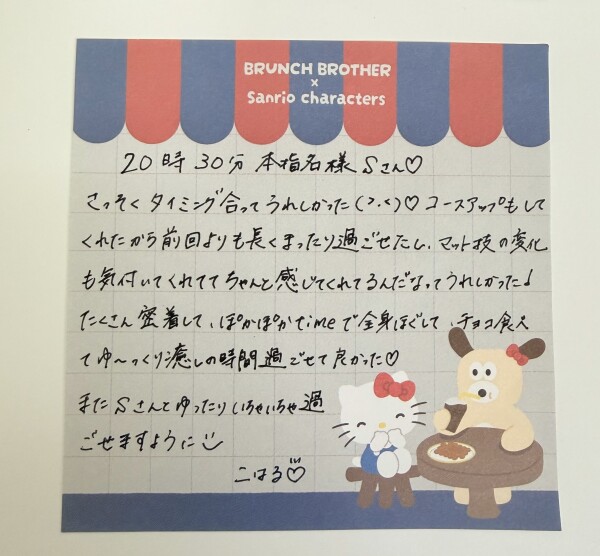 BRUNCH BROTHER
×
Sanrio characters
20時30分 本指名様 Sさん♡
さっそくタイミング合ってうれしかった(>.<)♡ コースアップもして
くれたから前回よりも長くまったり過ごせたし、マット技の変化
も気付いてくれててちゃんと感じてくれてるんだなってうれしかった♩
たくさん密着して、ぽかぽかtimeで全身ほぐして、チョコ食べ
てゆ〜っくり癒しの時間過ごせて良かった♡
またSさんとゆったりいちゃいちゃ過
ごせますように
こはる♡